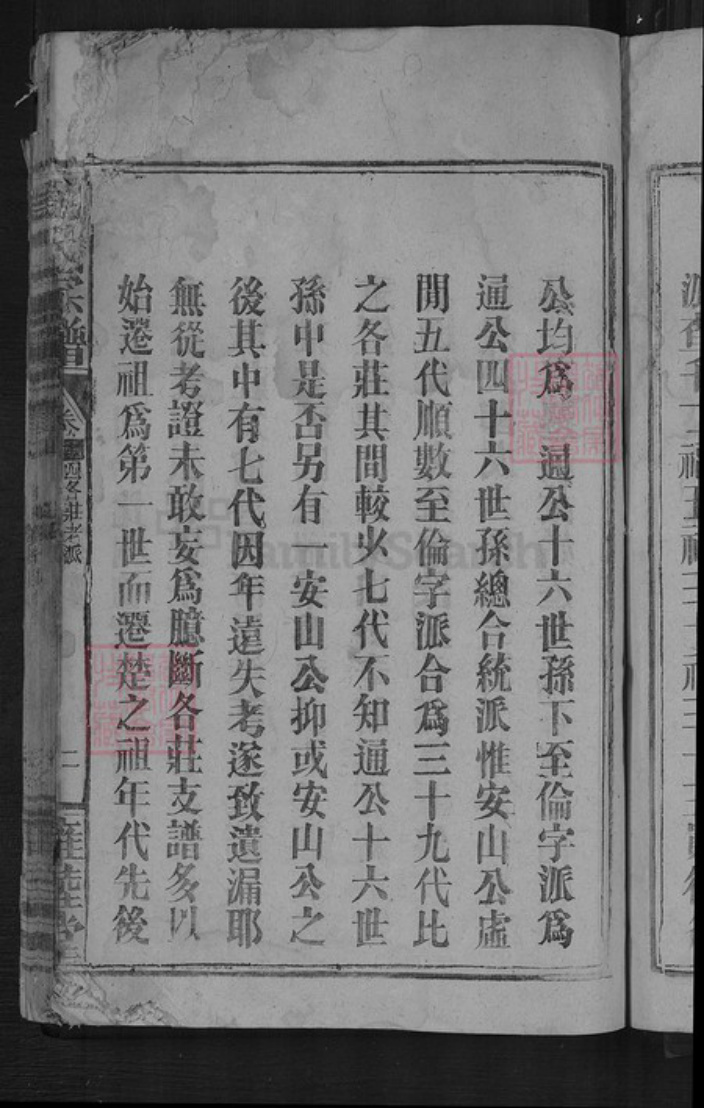 公均爲 通公十六世孫下至倫字派爲
通公四十六世孫總合統派惟安山公虛
間五代順數至倫字派合爲三十九代比
之各莊其間較少七代不知通公十六世
孫中是否另有一安山公抑或安山公之
後其中有七代因年遠失考遂致遺漏耶
無從考證未敢妄爲臆斷各莊支譜多以
始遷祖爲第一世而遷楚之祖年代先後
宗譜 卷 各莊老派 二
FamilySearch